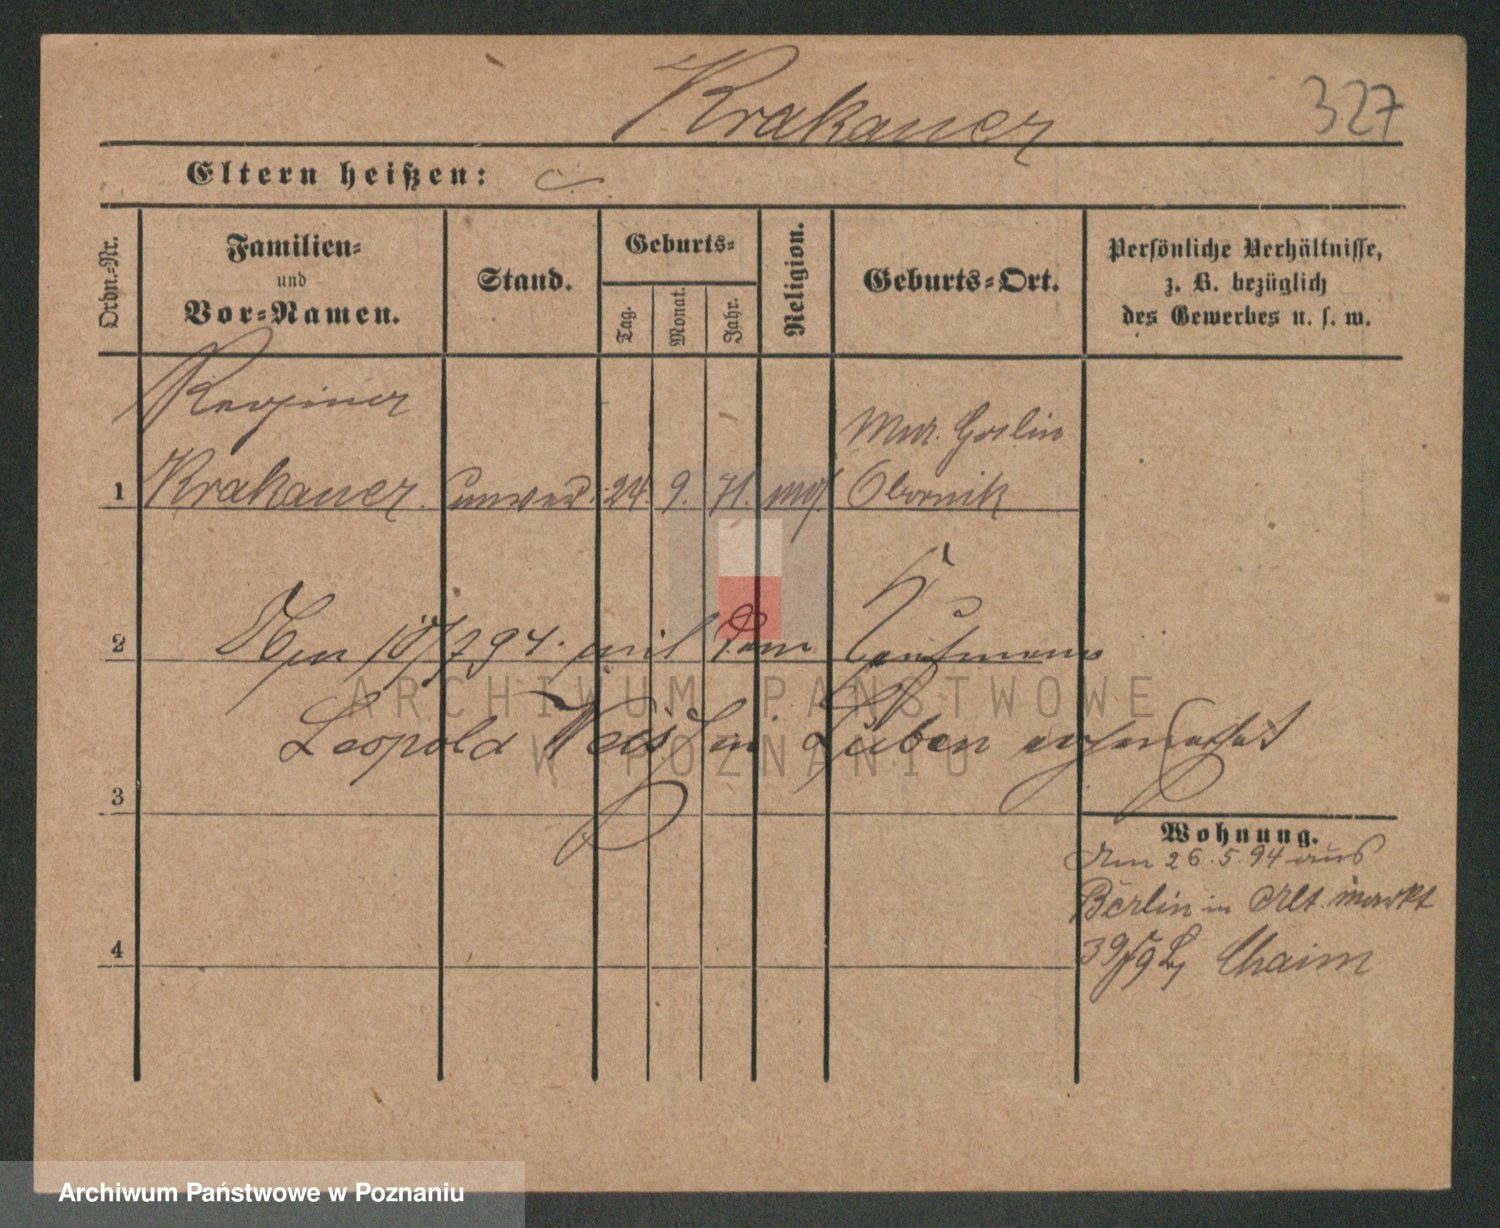 Krakauer
327
Eltern heißen:
Ordn.-Nr.
Familien-
und
Vor-Namen.
Stand.
Geburts-
Tag.
Monat.
Jahr.
Religion.
Geburts-Ort.
Persönliche Verhältnisse,
z. B. bezüglich
des Gewerbes u. s. w.
Mur. Goslin
1 Krakauer. unver. 24. 9. 71. mos. Obornik
2 mit dem Kaufmann
Leopold Lüben
3
Wohnung.
Am 26.5.94 aus
Berlin in Alt. markt
39 Chaim
4
ARCHIWUM PAŃSTWOWE
W POZNANIU
Archiwum Państwowe w Poznaniu